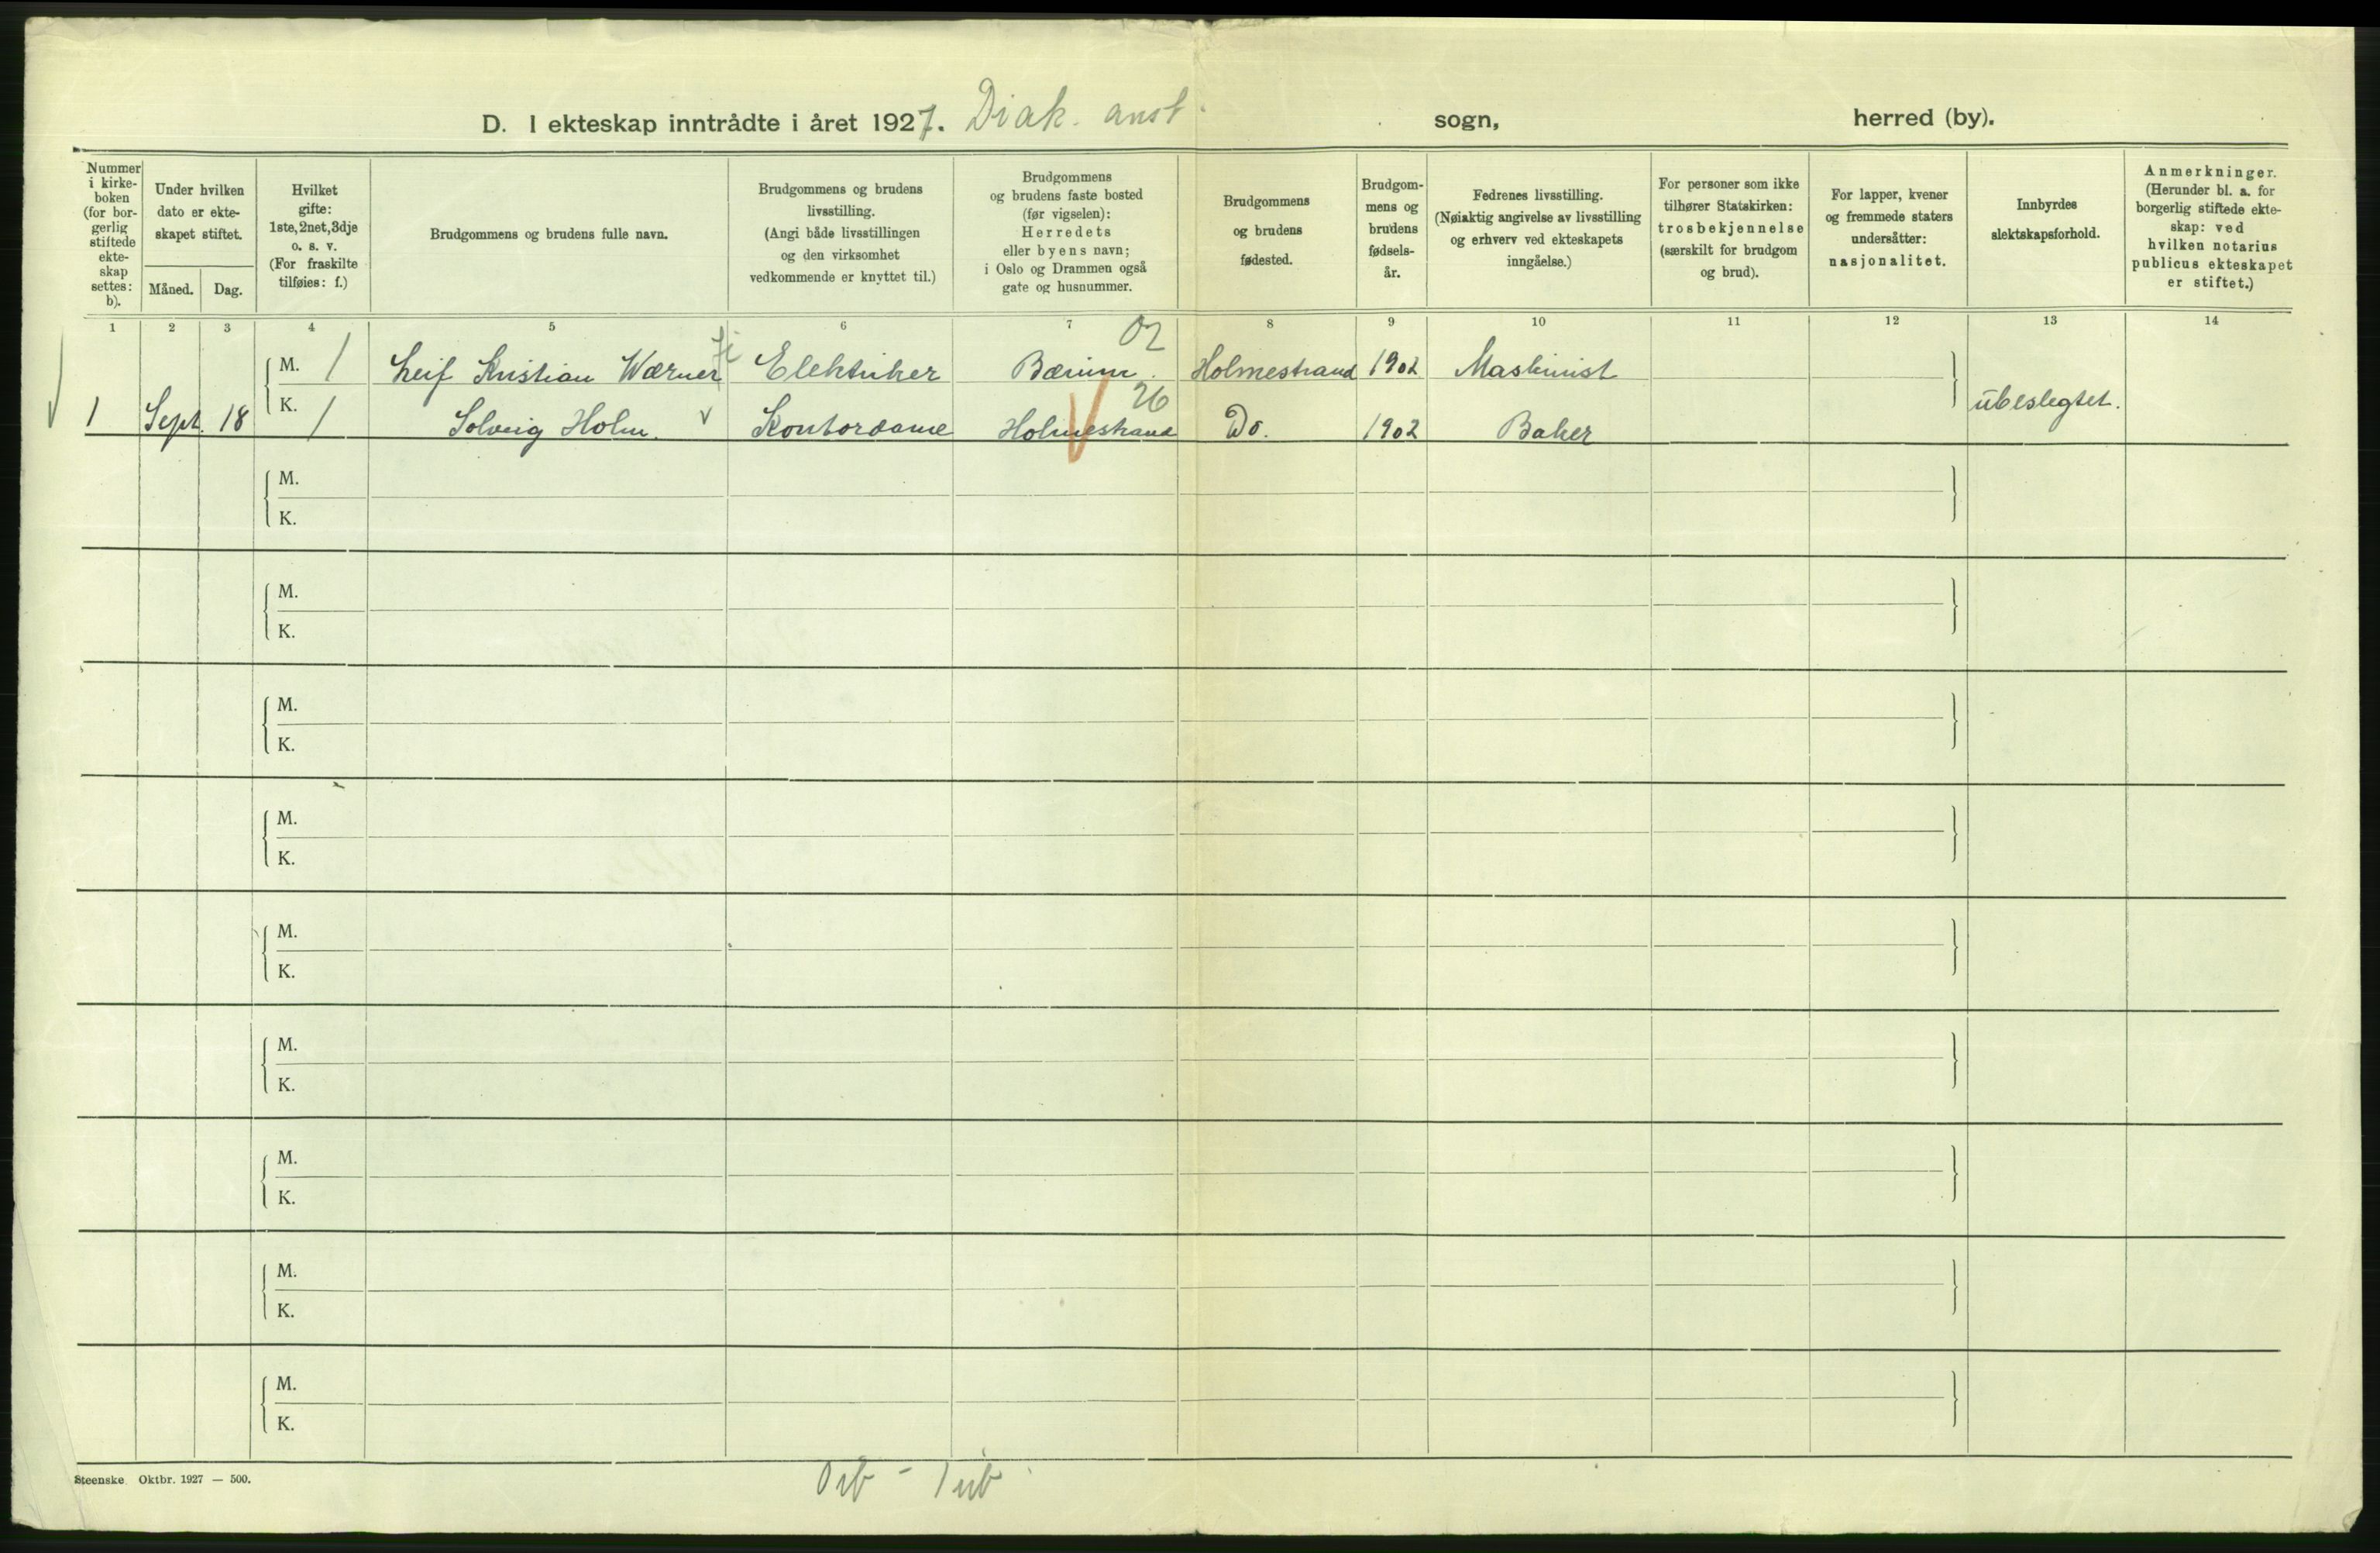 D. I ekteskap inntrådte i året 1927. Diak. anst. sogn, herred (by).
Nummer i kirke-boken (for bor-gerlig stiftede ekte-skap settes: b).
Under hvilken dato er ekte-skapet stiftet.
Måned. Dag.
Hvilket gifte: 1ste, 2net, 3dje o. s. v. (For fraskilte tilføies: f.)
Brudgommens og brudens fulle navn.
Brudgommens og brudens livsstilling. (Angi både livsstillingen og den virksomhet vedkommende er knyttet til.)
Brudgommens og brudens faste bosted (før vigselen): Herredets eller byens navn; i Oslo og Drammen også gate og husnummer.
Brudgommens og brudens fødested.
Brudgom-mens og brudens fødsels-år.
Fedrenes livsstilling. (Nøiaktig angivelse av livsstilling og erhverv ved ekteskapets inngåelse.)
For personer som ikke tilhører Statskirken: trosbekjennelse (særskilt for brudgom og brud).
For lapper, kvener og fremmede staters undersåtter: nasjonalitet.
Innbyrdes slektskapsforhold.
Anmerkninger. (Herunder bl. a. for borgerlig stiftede ekte-skap: ved hvilken notarius publicus ekteskapet er stiftet.)
1 2 3 4 5 6 7 8 9 10 11 12 13 14
02
M. 1 Leif Kristian Wærner Elektriker Bærum. Holmestrand 1902 Maskinist
26
1 Sept. 18 K. 1 Solveig Holm. Kontordame Holmestrand Do. 1902 Baker ubeslegtet.
M.
K.
M.
K.
M.
K.
M.
K.
M.
K.
M.
K.
M.
K.
M.
K.
M.
K.
Steenske Oktbr. 1927 — 500.